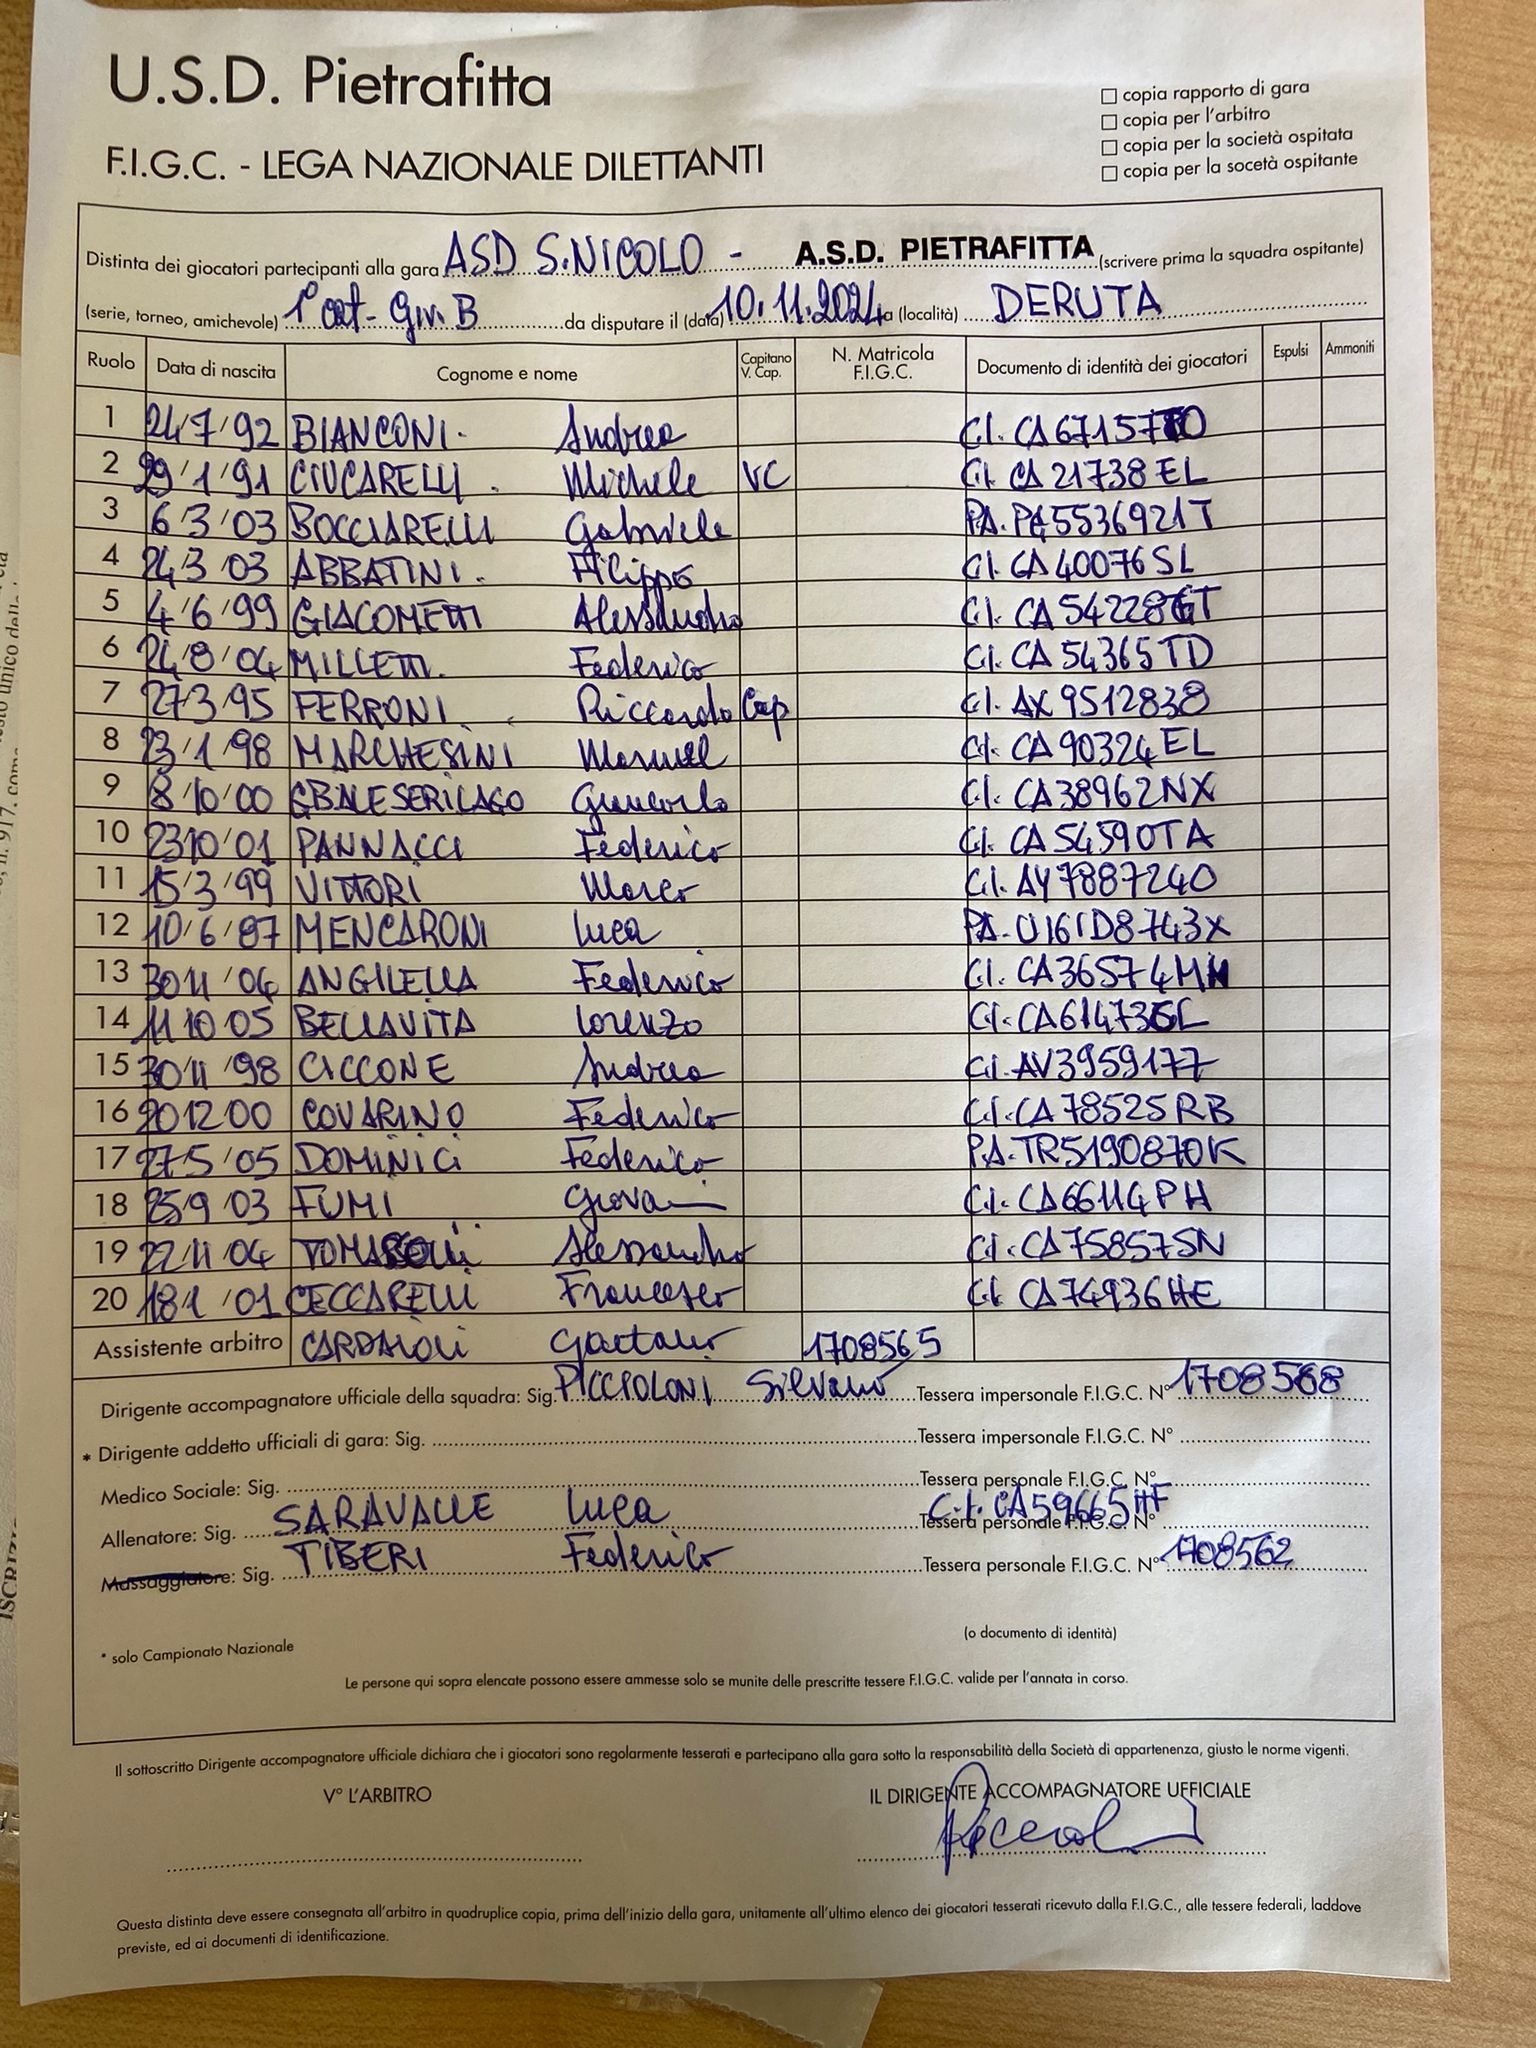 U.S.D. Pietrafitta
F.I.G.C. - LEGA NAZIONALE DILETTANTI
copia rapporto di gara
copia per l'arbitro
copia per la società ospitata
copia per la socetà ospitante
Distinta dei giocatori partecipanti alla gara ASD S.NICOLO - A.S.D. PIETRAFITTA (scrivere prima la squadra ospitante)
(serie, torneo, amichevole) 1° cat - Gir. B da disputare il (data) 10.11.2024 a (località) DERUTA
Ruolo Data di nascita Cognome e nome Capitano V. Cap. N. Matricola F.I.G.C. Documento di identità dei giocatori Espulsi Ammoniti
1 24/7/92 BIANCONI. Andrea C.I.
2 29/1/91 CIUCARELLI. Michele VC C.I. CA 21738 EL
3 6/3/03 BOCCIARELLI Gabriele PA.
4 24/3/03 ABBATINI. Filippo C.I. CA 40076 SL
5 4/6/99 GIACOMETTI Alessandro C.I.
6 24/8/04 MILLETTI. Federico C.I. CA 54365 TD
7 27/3/95 FERRONI. Riccardo Cap C.I. AX 9512838
8 23/1/98 MARCHESINI Manuel C.I. CA 90324 EL
9 8/10/00 GBALESERILAGO Giancarlo C.I. CA38962NX
10 23/10/01 PANNACCI Federico C.I. CA 54590TA
11 15/3/99 VITTORI Marco C.I. AY 7887240
12 10/6/87 MENCARONI Luca PA.
13 30/11/04 ANGILELLA Federico C.I.
14 11/10/05 BELLAVITA Lorenzo C.I.
15 30/11/98 CICCONE Andrea C.I. AV3959177
16 20/12/00 COVARINO Federico C.I. CA 78525 RB
17 27/5/05 DOMINICI Federico P.A. TR5190870K
18 25/9/03 FUMI Giovanni C.I. CA66114PH
19 22/11/04 Alessandro C.I. CA75857SN
20 18/1/01 CECCARELLI Francesco C.I. CA74936HE
Assistente arbitro CARDAIOLI Gaetano 1708565
Dirigente accompagnatore ufficiale della squadra: Sig. PICCIOLONI Silvano Tessera impersonale F.I.G.C. N° 1708568
* Dirigente addetto ufficiali di gara: Sig. Tessera impersonale F.I.G.C. N°
Medico Sociale: Sig. Tessera personale F.I.G.C. N°
Allenatore: Sig. SARAVALLE Luca C.I. CA59665HF Tessera personale F.I.G.C. N°
Massaggiatore: Sig. TIBERI Federico Tessera personale F.I.G.C. N° 1708562
(o documento di identità)
* solo Campionato Nazionale
Le persone qui sopra elencate possono essere ammesse solo se munite delle prescritte tessere F.I.G.C. valide per l'annata in corso.
Il sottoscritto Dirigente accompagnatore ufficiale dichiara che i giocatori sono regolarmente tesserati e partecipano alla gara sotto la responsabilità della Società di appartenenza, giusto le norme vigenti.
V° L'ARBITRO IL DIRIGENTE ACCOMPAGNATORE UFFICIALE
Questa distinta deve essere consegnata all'arbitro in quadruplice copia, prima dell'inizio della gara, unitamente all'ultimo elenco dei giocatori tesserati ricevuto dalla F.I.G.C., alle tessere federali, laddove
previste, ed ai documenti di identificazione.